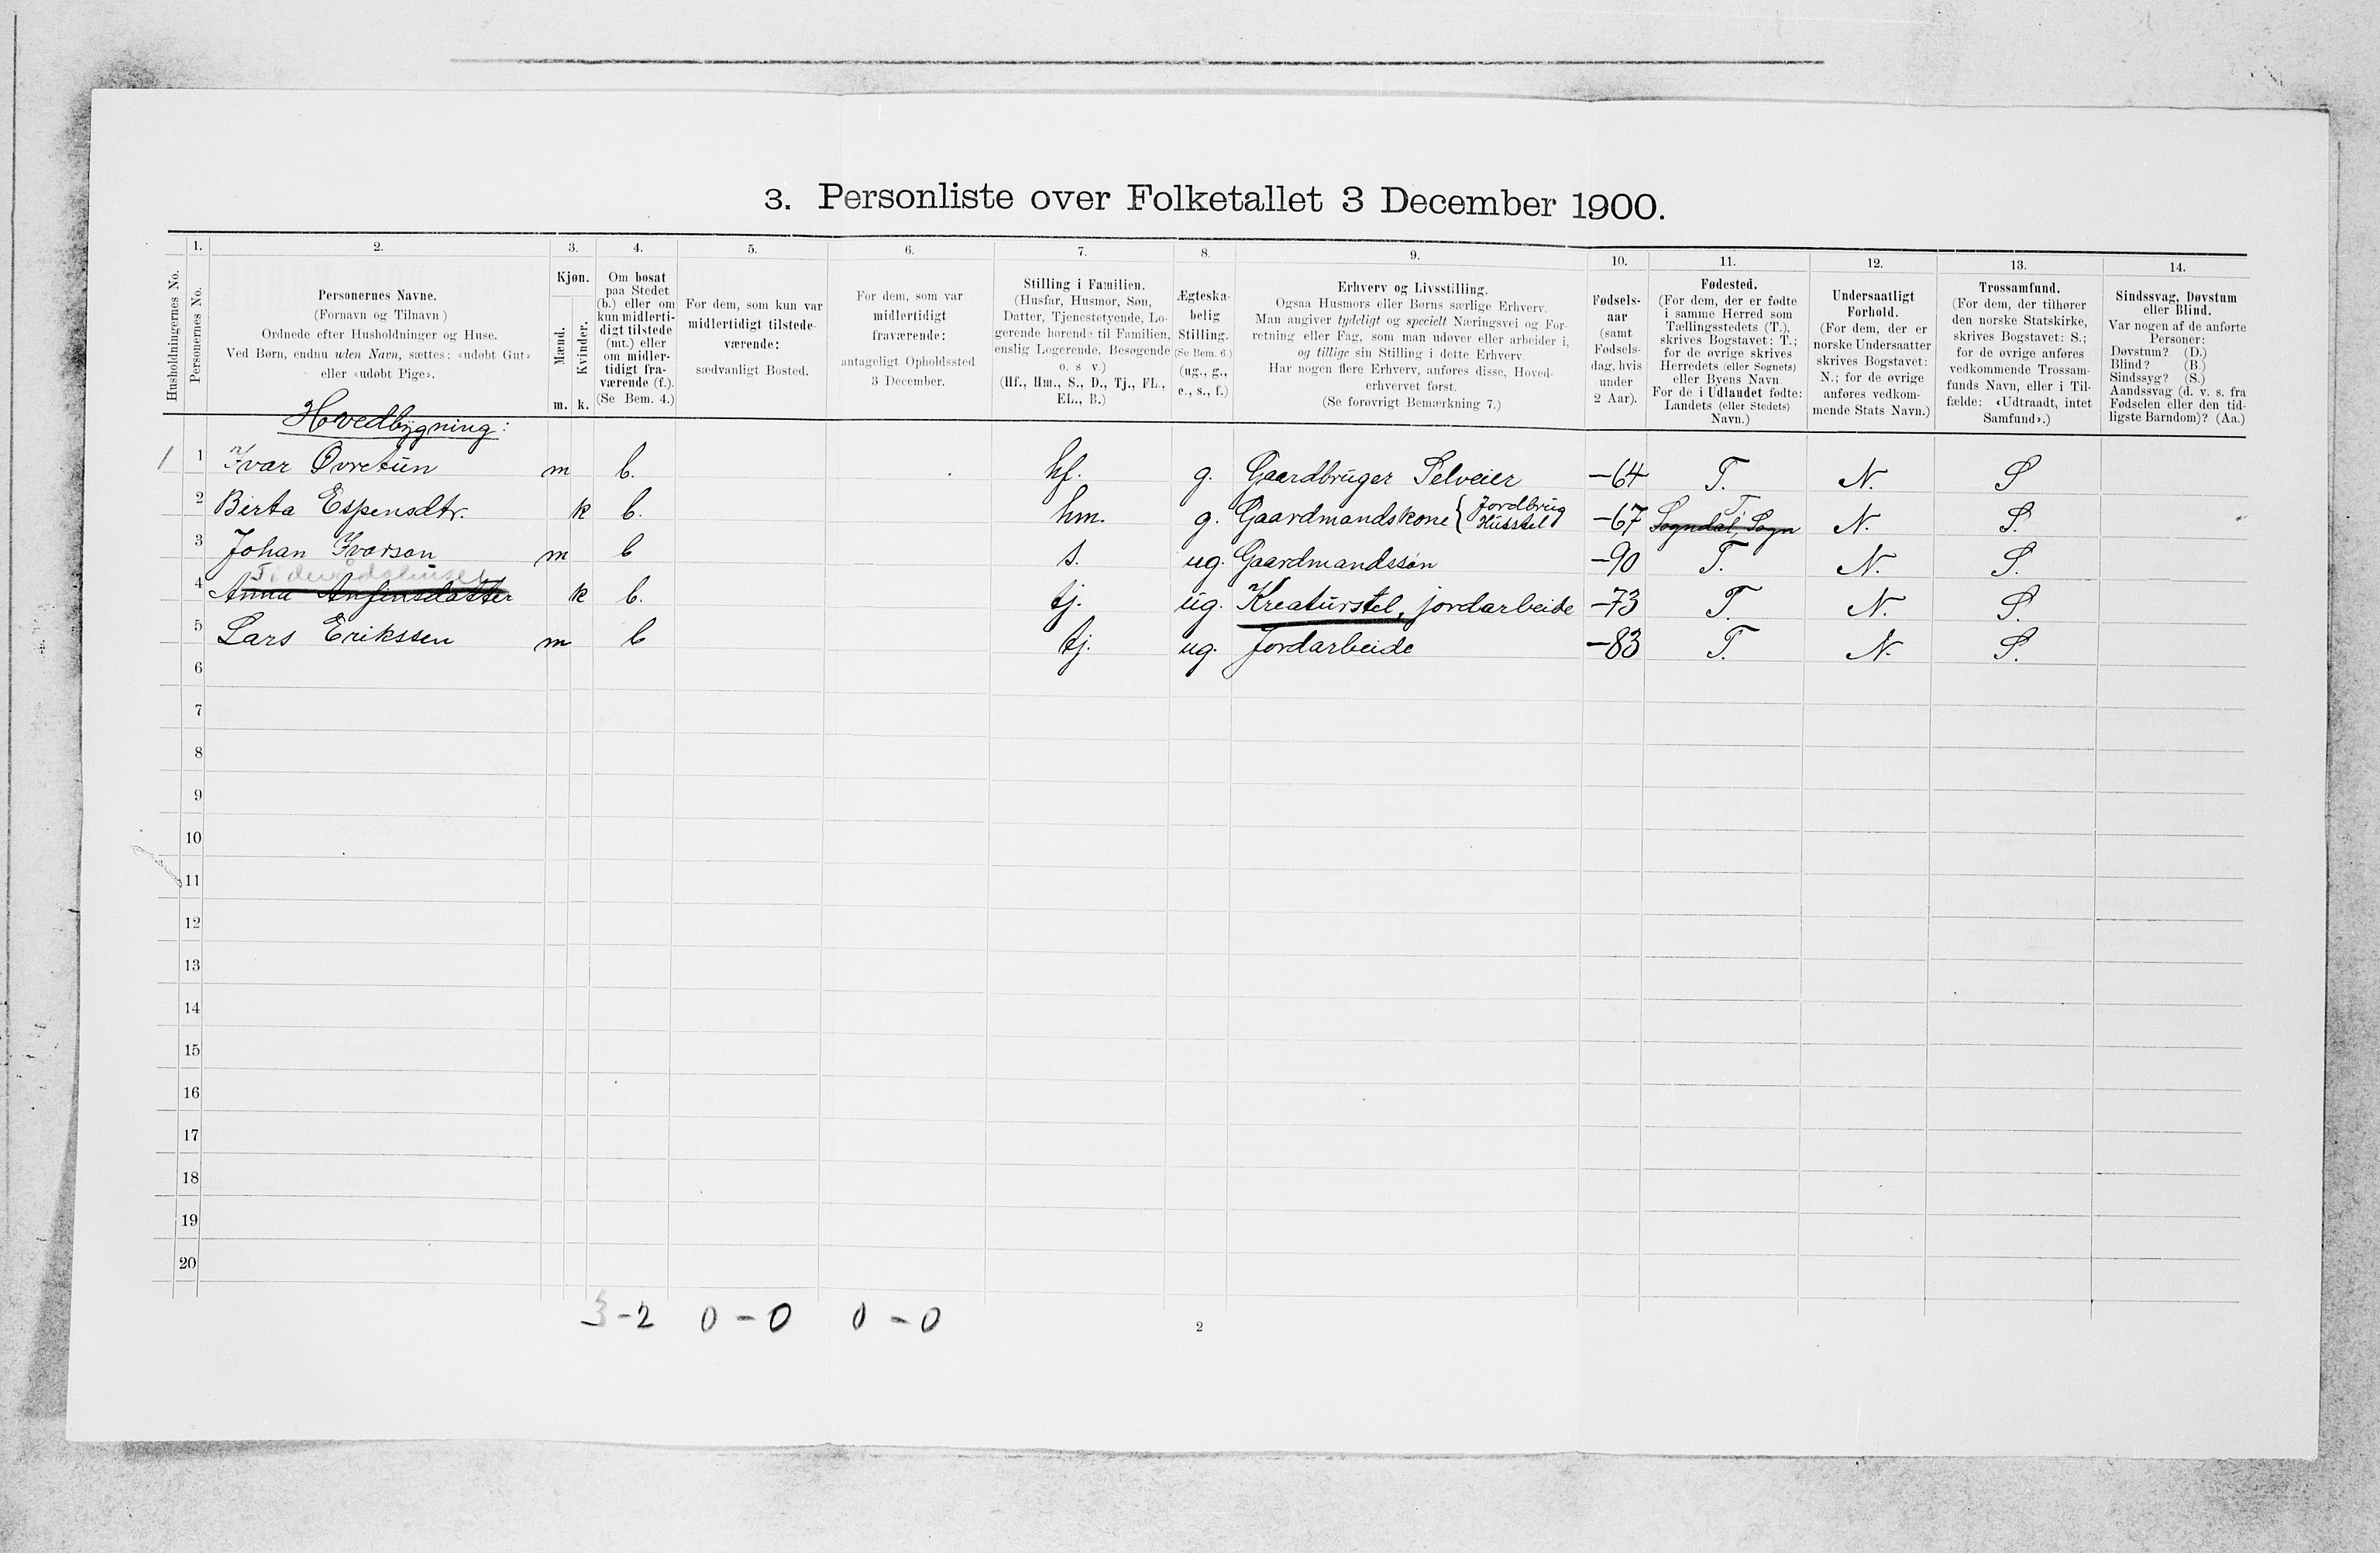 3. Personliste over Folketallet 3 December 1900.
1. 2. 3. 4. 5. 6. 7. 8. 9. 10. 11. 12. 13. 14.
Husholdningernes No.
Personernes No.
Personernes Navne.
(Fornavn og Tilnavn)
Ordnede efter Husholdninger og Huse.
Ved Børn, endnu uden Navn, sættes: «udøbt Gut»
eller «udøbt Pige».
Kjøn.
Mænd.
Kvinder.
m. k.
Om bosat
paa Stedet
(b.) eller om
kun midlerti-
digt tilstede
(mt.) eller
om midler-
tidigt fra-
værende (f.).
(Se Bem. 4.)
For dem, som kun var
midlertidigt tilstede-
værende:
sædvanligt Bosted.
For dem, som var
midlertidigt
fraværende:
antageligt Opholdssted
3 December.
Stilling i Familien.
(Husfar, Husmor, Søn,
Datter, Tjenestetyende, Lo-
gerende hørende til Familien,
enslig Logerende, Besøgende
o. s v.)
(Hf., Hm., S., D., Tj., FL.,
EL., B.)
Ægteska-
belig
Stilling.
(Se Bem. 6.)
(ug., g.,
e., s., f.)
Erhverv og Livsstilling.
Ogsaa Husmors eller Børns særlige Erhverv.
Man angiver tydeligt og specielt Næringsvei og For-
retning eller Fag, som man udøver eller arbeider i,
og tillige sin Stilling i dette Erhverv
Har nogen flere Erhverv, anføres disse, Hoved-
erhvervet først.
(Se forøvrigt Bemærkning 7.)
Fødsels-
aar
(samt
Fødsels-
dag, hvis
under
2 Aar).
Fødested.
(For dem, der er fødte
i samme Herred som
Tællingsstedets (T.),
skrives Bogstavet: T.;
for de øvrige skrives
Herredets (eller Sognets)
eller Byens Navn.
For de i Udlandet fødte:
Landets (eller Stedets)
Navn.)
Undersaatligt
Forhold.
(For dem, der er
norske Undersaatter
skrives Bogstavet:
N.; for de øvrige
anføres vedkom-
mende Stats Navn.)
Trossamfund.
(For dem, der tilhører
den norske Statskirke,
skrives Bogstavet: S.;
for de øvrige anføres
vedkommende Trossam-
funds Navn, eller i Til-
fælde: «Udtraadt, intet
Samfund».)
Sindssvag, Døvstum
eller Blind.
Var nogen af de anførte
Personer:
Døvstum? (D.)
Blind? (B.)
Sindssyg? (S.)
Aandssvag (d. v. s. fra
Fødselen eller den tid-
ligste Barndom)? (Aa.)
Hovedbygning:
1 1 Ivar Øvretun m b. hf. g. Gaardbruger Selveier -64 T. N. S
2 Birta Espensdtr. k b. hm. g. Gaardmandskone { Jordbrug Husstel -67 T. Sogndal, Sogn N. S.
3 Johan Ivarson m b s. ug. Gaardmandssøn -90 T. N. S.
4 Anna Anfinsdatter k b. tj. ug. Kreaturstel, jordarbeide -73 T. N. S.
5 Lars Erikssen m b tj. ug. Jordarbeide -83 T. N. S.
6
7
8
9
10
11
12
13
14
15
16
17
18
19
20
3-2 0-0 0-0
2